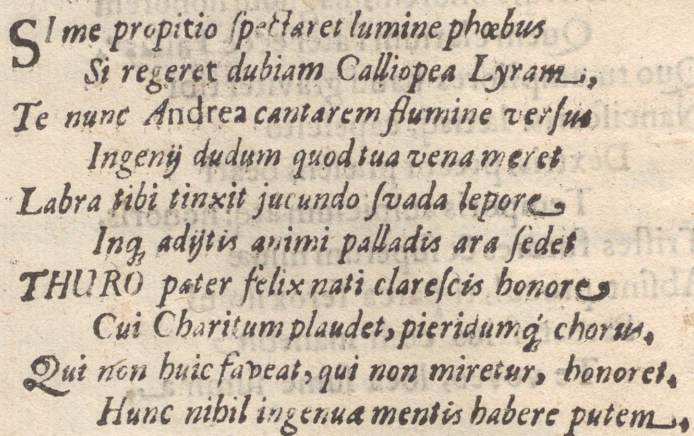 SI me propitio ſpectaret lumine phœbus
Si regeret dubiam Calliopea Lyram,
Te nunc Andrea cantarem flumine verſus
Ingenij dudum quod tua vena meret
Labra tibi tinxit jucundo ſvada lepore,
Inq́; adijtis animi palladis ara ſedet
THURO pater felix nati clareſcis honore,
Cui Charitum plaudet, pieridumq́; chorus.
Qui non huic faveat, qui non miretur, honoret.
Hunc nihil ingenuæ mentis habere putem.